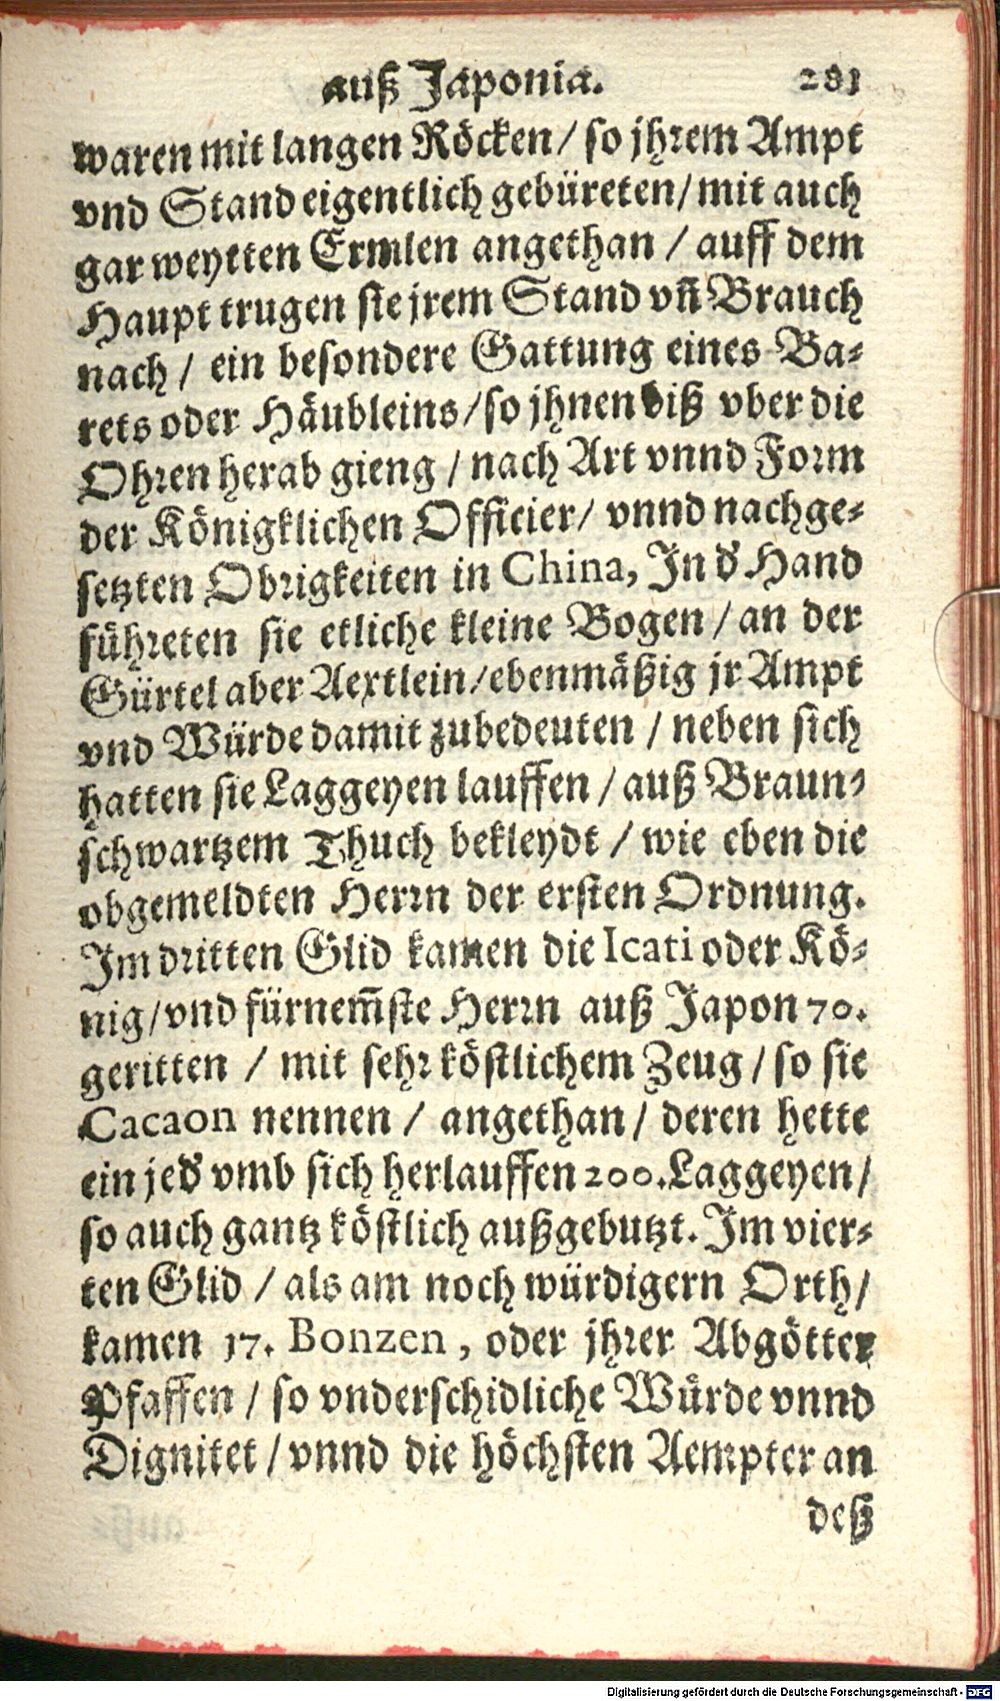 auß Japonia. 281
waren mit langen Röcken / so jhrem Ampt
vnd Stand eigentlich gebüreten / mit auch
gar weytten Ermlen angethan / auff dem
Haupt trugen sie jrem Stand vñ Brauch
nach / ein besondere Gattung eines Ba-
rets oder Häubleins / so jhnen biß vber die
Ohren herab gieng / nach Art vnnd Form
der Königklichen Officier / vnnd nachge-
setzten Obrigkeiten in China, In d' Hand
führeten sie etliche kleine Bogen / an der
Gürtel aber Aextlein / ebenmäßig jr Ampt
vnd Würde damit zubedeuten / neben sich
hatten sie Laggeyen lauffen / auß Braun-
schwartzem Thuch bekleydt / wie eben die
obgemeldten Herrn der ersten Ordnung.
Im dritten Glid kamen die Icati oder Kö-
nig / vnd fürnem̃ste Herrn auß Japon 70.
geritten / mit sehr köstlichem Zeug / so sie
Cacaon nennen / angethan / deren hette
ein jed' vmb sich herlauffen 200. Laggeyen /
so auch gantz köstlich außgebutzt. Im vier-
ten Glid / als am noch würdigern Orth /
kamen 17. Bonzen, oder jhrer Abgötter
Pfaffen / so vnderschidliche Würde vnnd
Dignitet / vnnd die höchsten Aempter an
deß
Digitalisierung gefördert durch die Deutsche Forschungsgemeinschaft - DFG